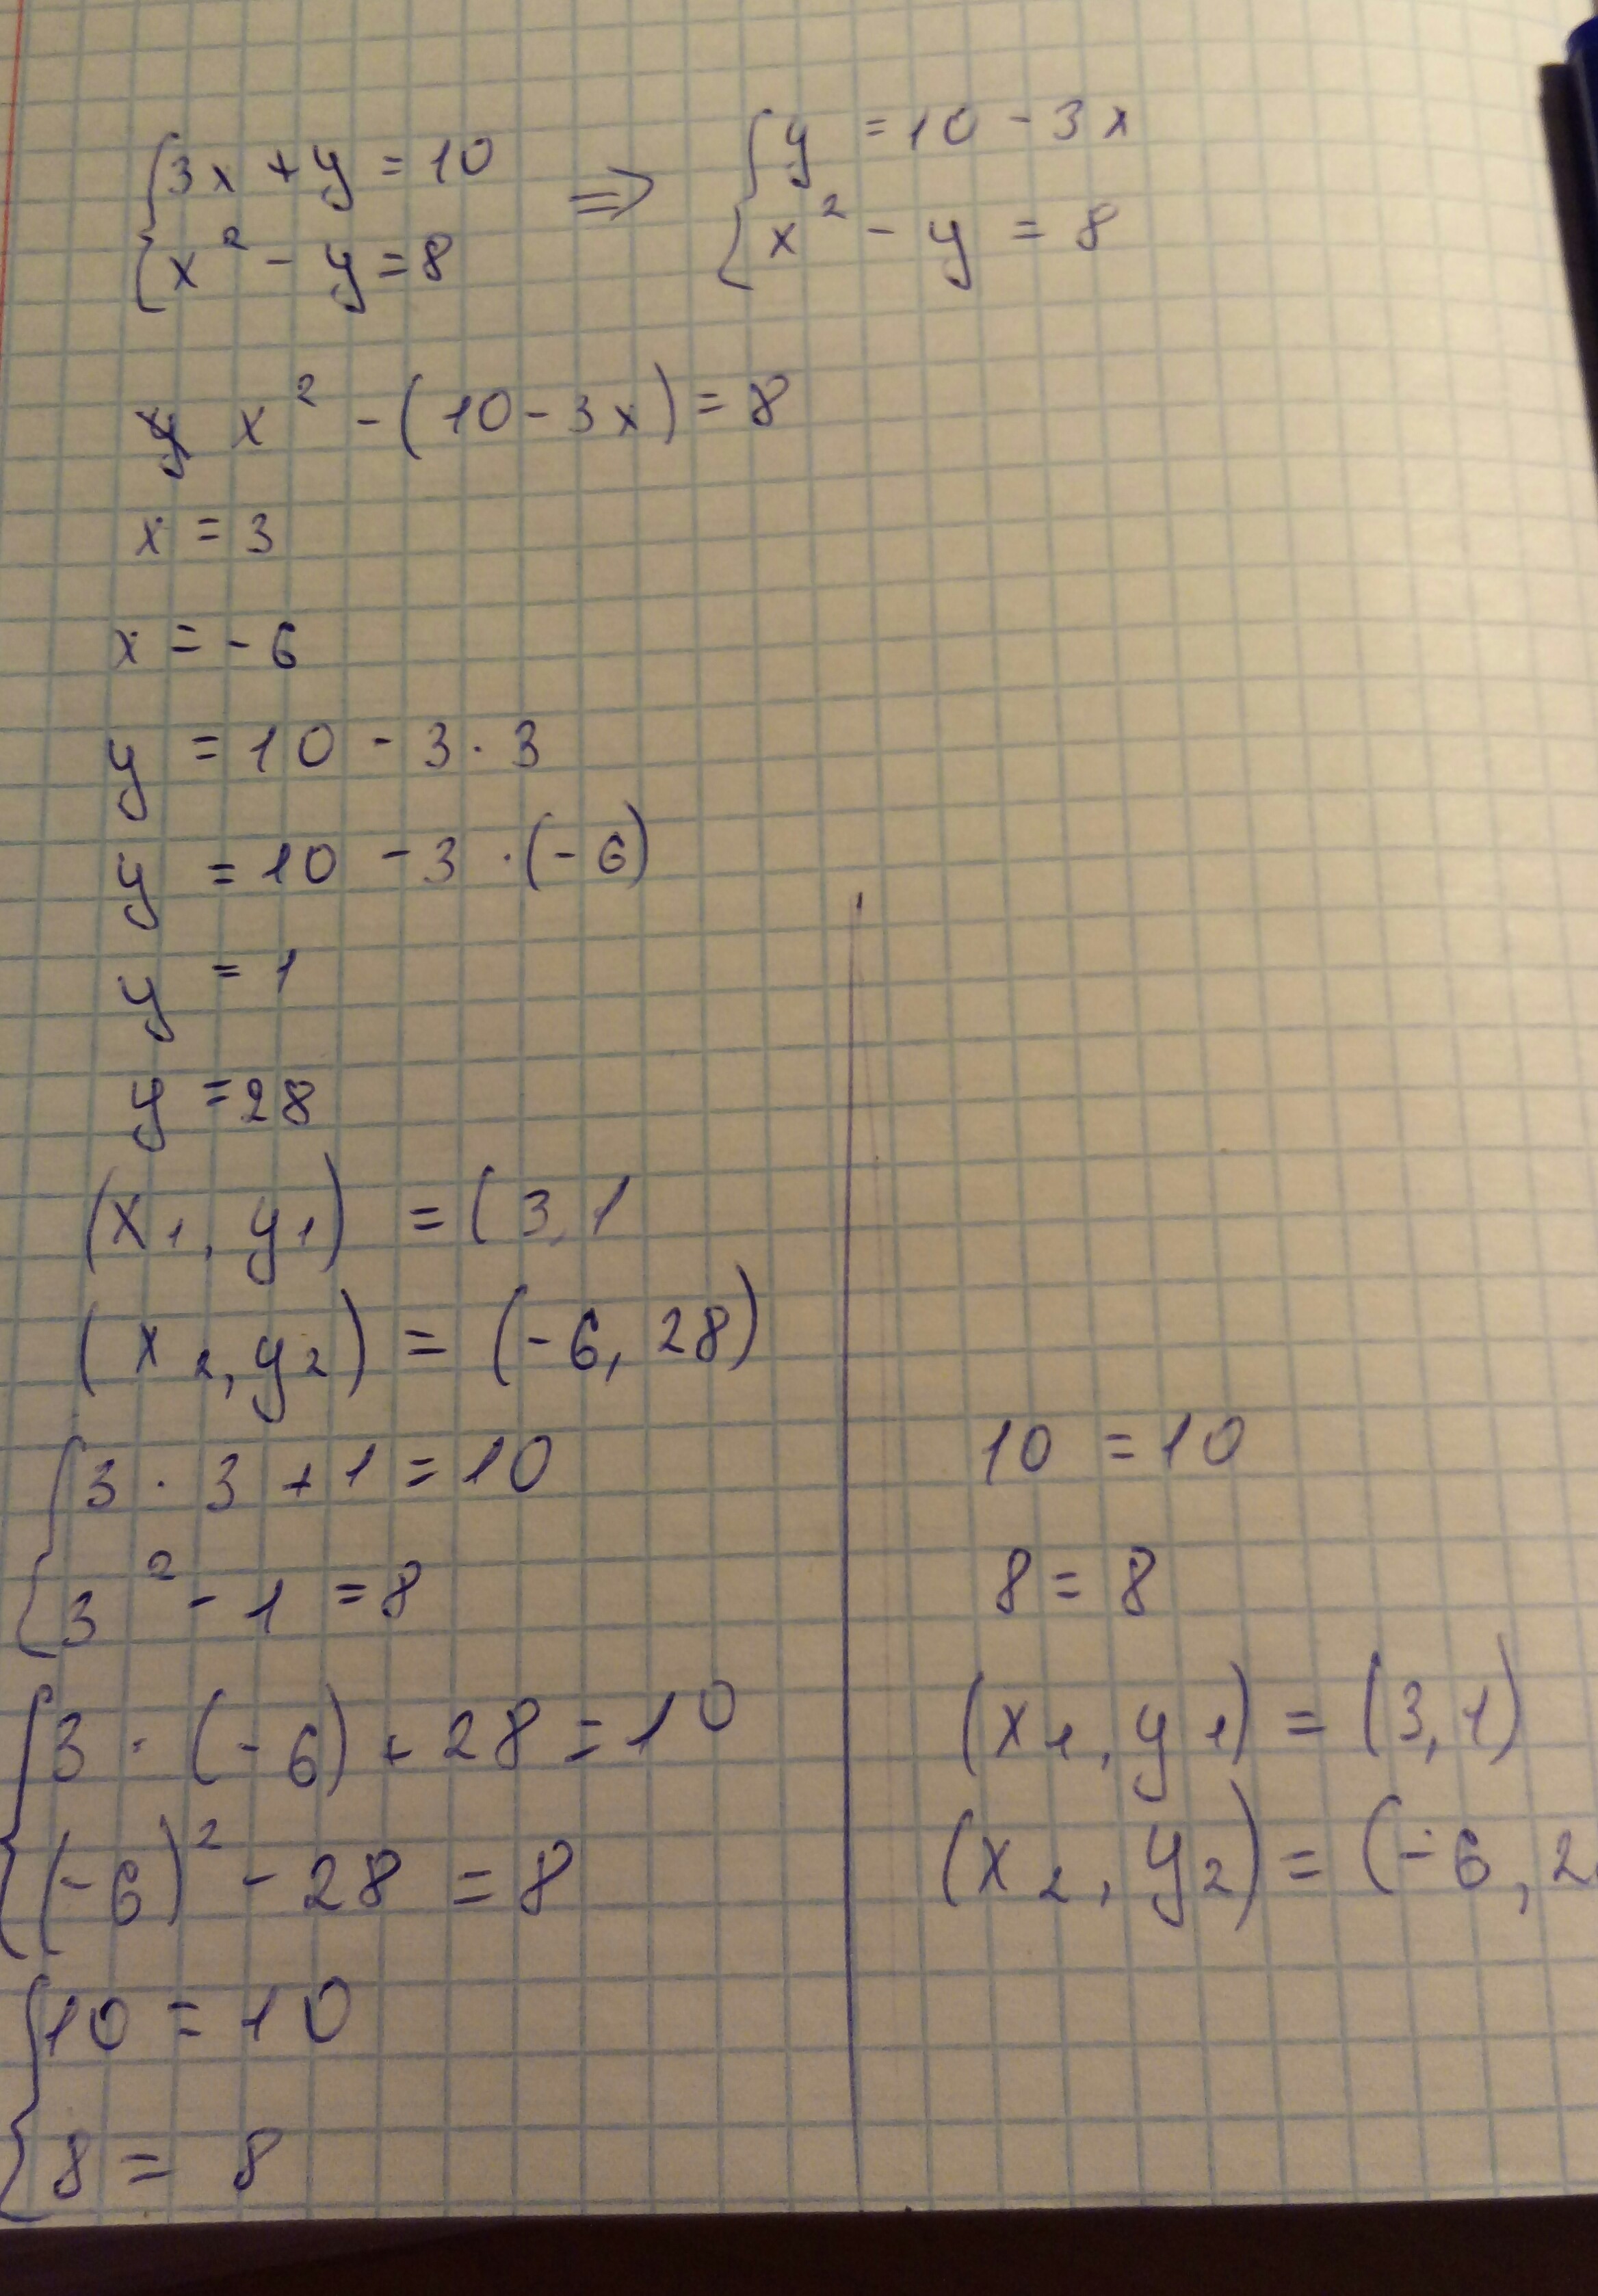 {3x + y = 10 ⇒ {y = 10 - 3x
{x² - y = 8 {x² - y = 8
x² - (10 - 3x) = 8
x = 3
x = -6
y = 10 - 3 · 3
y = 10 - 3 · (-6)
y = 1
y = 28
(x₁, y₁) = (3, 1
(x₂, y₂) = (-6, 28)
{3 · 3 + 1 = 10
{3² - 1 = 8
{3 · (-6) + 28 = 10
{(-6)² - 28 = 8
{10 = 10
{8 = 8
10 = 10
8 = 8
(x₁, y₁) = (3, 1)
(x₂, y₂) = (-6, 2